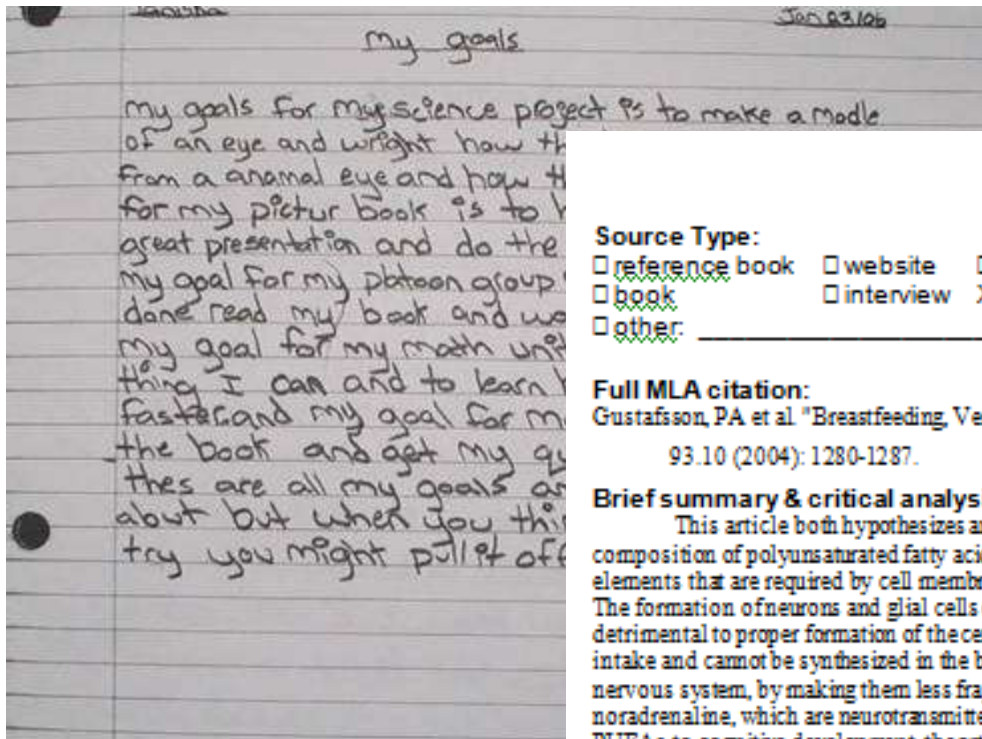 Jan 03/06
my goals
my goals for my science project is to make a modle
of an eye and wright how th
from a anamal eye and how th
for my pictur book is to h
great presentation and do the
my goal for my platoon group
done read my book and wo
my goal for my math unit
thing I can and to learn h
faster and my goal for m
the book and get my qu
thes are all my goals an
abut but when you thi
try you might pull it off
Source Type:
☐ reference book ☐ website
☐ book ☐ interview
☐ other:
Full MLA citation:
Gustafsson, PA et al. "Breastfeeding, Ve
93.10 (2004): 1280-1287.
Brief summary & critical analys
This article both hypothesizes a
composition of polyunsaturated fatty acid
elements that are required by cell membr
The formation of neurons and glial cells
detrimental to proper formation of the ce
intake and cannot be synthesized in the b
nervous system, by making them less fra
noradrenaline, which are neurotransmitte